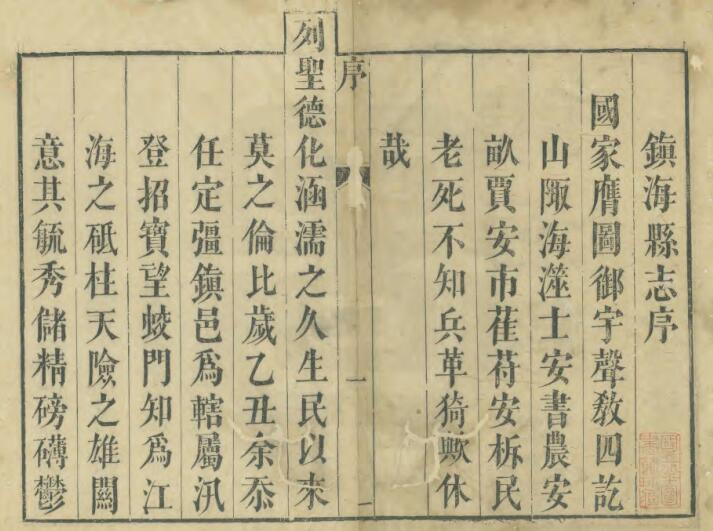 鎮海縣志序
國家膺圖御宇聲教四訖
山陬海澨士安書農安
畝賈安市萑苻安柝民
老死不知兵革猗歟休
哉
序
一
列聖德化涵濡之久生民以來
莫之倫比歲乙丑余忝
任定彊鎮邑爲轄屬汛
登招寶望蛟門知爲江
海之砥柱天險之雄關
意其毓秀儲精磅礴鬱